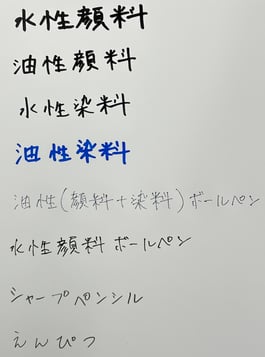 水性顔料
油性顔料
水性染料
油性染料
油性(顔料+染料)ボールペン
水性顔料ボールペン
シャープペンシル
えんぴつ